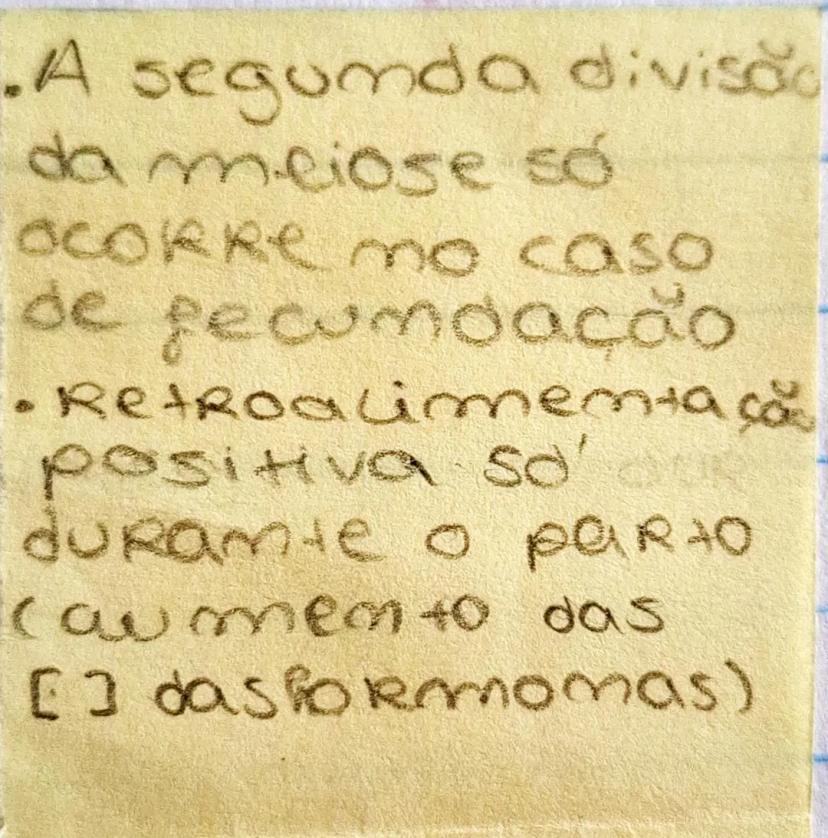 . A segunda divisão
da meiose só
ocorre no caso
de fecundação
. Retroalimentação
positiva só
durante o parto
(aumento das
[ ] das hormonas)